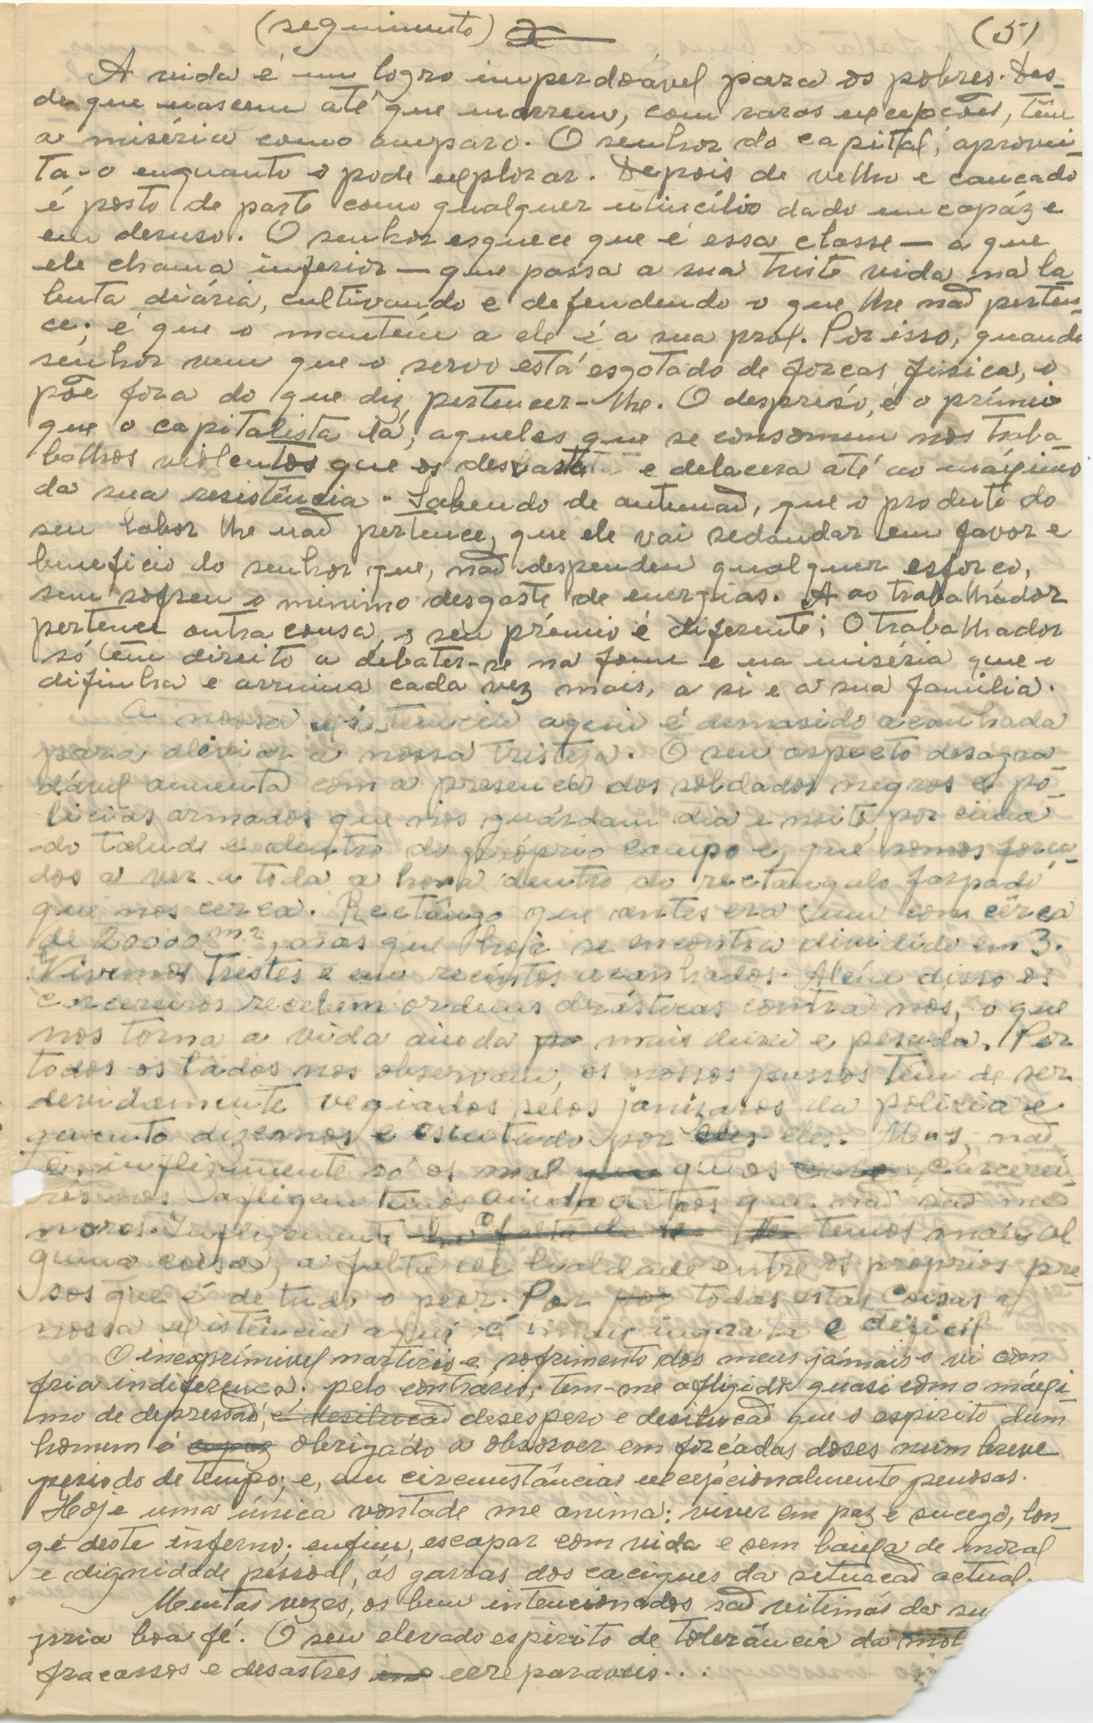 (seguimento) (5)
A vida é um logro imperdoável para os pobres. Des-
de que nascem até que morrem, com raras excepções, têm
a miséria como amparo. O senhor do capital, aprovei-
ta-o enquanto o pode explorar. Depois de velho e cançado
é posto de parte como qualquer utincílio dado em capáz e
em desuso. O senhor esquece que é essa classe — a que
ele chama inferior — que passa a sua triste vida na la
buta diária, cultivando e defendendo o que lhe não perten-
ce; e que o mantém a ele é a sua prol. Por isso, quando
senhor vem que o servo está esgotado de forcas fisica, o
põe fora do que diz pertencer-lhe. O despreso, é o prémio
que o capitalista dá, aqueles que se consomem nos traba-
balhos violentos que os desvasta e delacera até ao máximo
da sua resistência. Sabendo de antemão, que o produto do
seu labor lhe não pertence, que ele vai redundar em favor e
beneficio do senhor que, não despendeu qualquer esforco,
sem sofreu o menimo desgaste de energias. A ao trabalhádor
pertence outra cousa, o seu prémio é diferente; O trabalhador
só têm direito a debater-se na fome e na miséria que o
difinha e arruina cada vez mais, a si e a sua familia.
A nossa existencia aqui é demasido acanhada
para aliviar a nossa tristeza. O seu aspecto desagra-
dável aumenta com a presenca dos soldados negros e po-
licias armados que nos guárdam dia e noite, por cima
do talude e dentro do próprio campo e, que somos forca-
dos a ver a toda a hora dentro do rectangulo farpado
que nos cerca. Rectângo que antes era um com cêrca
de 20000 m2, mas que hoje se encontra dividido em 3.
Vivemos tristes e em recintos acanhados. Além disso os
carcereiros recebem ordens drásticas contra nós, o que
nos torna a vida ainda mais dura e pesada. Por
todos os lados nos observam, os nossos passos têm de ser
devidamente vegiados pelos janizaros da policia e
quanto dizemos e escutado por eles. Mas, não
é, infelizmente só os mal que os carcerei-
ros nos afligem temos ainda outros que não são me
nores. Infelizmente temos mais al
guma coisa, a falta de lealdade entre os próprios pre
sos que é de tudo o peor. Por todas estas coisas a
nossa existência aqui é mais ingrata e dificil
O inexprimivel martirio e sofrimento dos meus jámais o vi com
fria indiferença. pelo contrário; tem-me afligido quasi como o máxi-
mo de depressão, desespero e desilucão que o espirito dum
homem é obrigádo a observer em forcádas doses num breve
periodo de tempo; e, em circunstâncias excepcionalmente penosas.
Hoje uma única vontade me anima: viver em paz e sucego, lon-
ge deste inferno; enfim, escapar com vida e sem baixa de moral
e dignidade pessoal, ás garras dos caciques da situacão actual.
Muitas vezes, os bem intencionados são vitimas da su
pria boa fé. O seu elevado espirito de tolerância da
fracassos e desastres